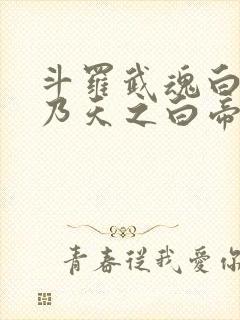 斗羅武魂白
乃天之白帝
青春從我愛你